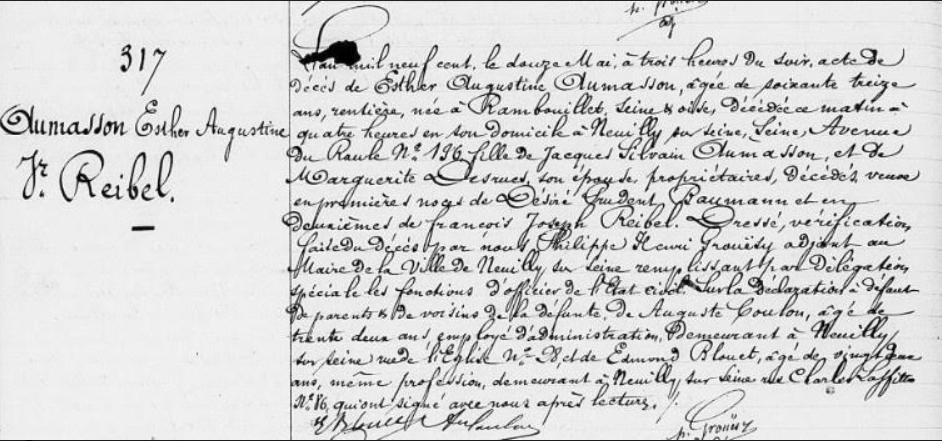 317
Aumasson Esther Augustine
Vve Reibel.
L'an mil neuf cent, le douze Mai, à trois heures du soir, acte de
décès de Esther Augustine Aumasson, âgée de soixante treize
ans, rentière, née à Rambouillet, seine & oise, décédée ce matin à
quatre heures en son domicile à Neuilly sur seine, Seine, Avenue
du Roule No 196 fille de Jacques Silvain Aumasson, et de
Marguerite Desrues, son épouse, propriétaires, décédés, veuve
en premières noces de Désiré Prudent Baumann et en
deuxièmes de françois Joseph Reibel. Dressé, vérification
faite du décès par nous Philippe Henri Grouïsy adjoint au
Maire de la Ville de Neuilly sur seine remplissant par délégation
spéciale les fonctions d'officier de l'Etat civil. Sur la déclaration à défaut
de parents & de voisins de la défunte, de Auguste Coulon, âgé de
trente deux ans, employé d'administration, demeurant à Neuilly
sur seine rue de l'Eglise No et de Edmond Blouet, âgé de vingt
ans, même profession, demeurant à Neuilly sur seine rue Charles Laffitte
No 86, qui ont signé avec nous après lecture. /.
E Blouet Au Coulon
p. Grouïsy